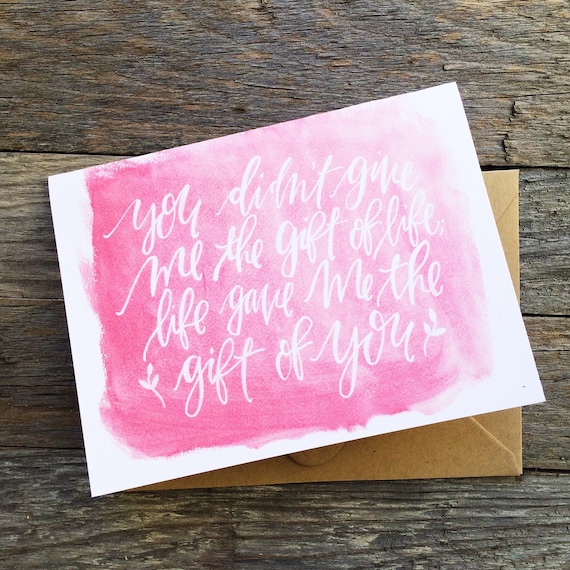 you didn't give
me the gift of life;
life gave me the
gift of you